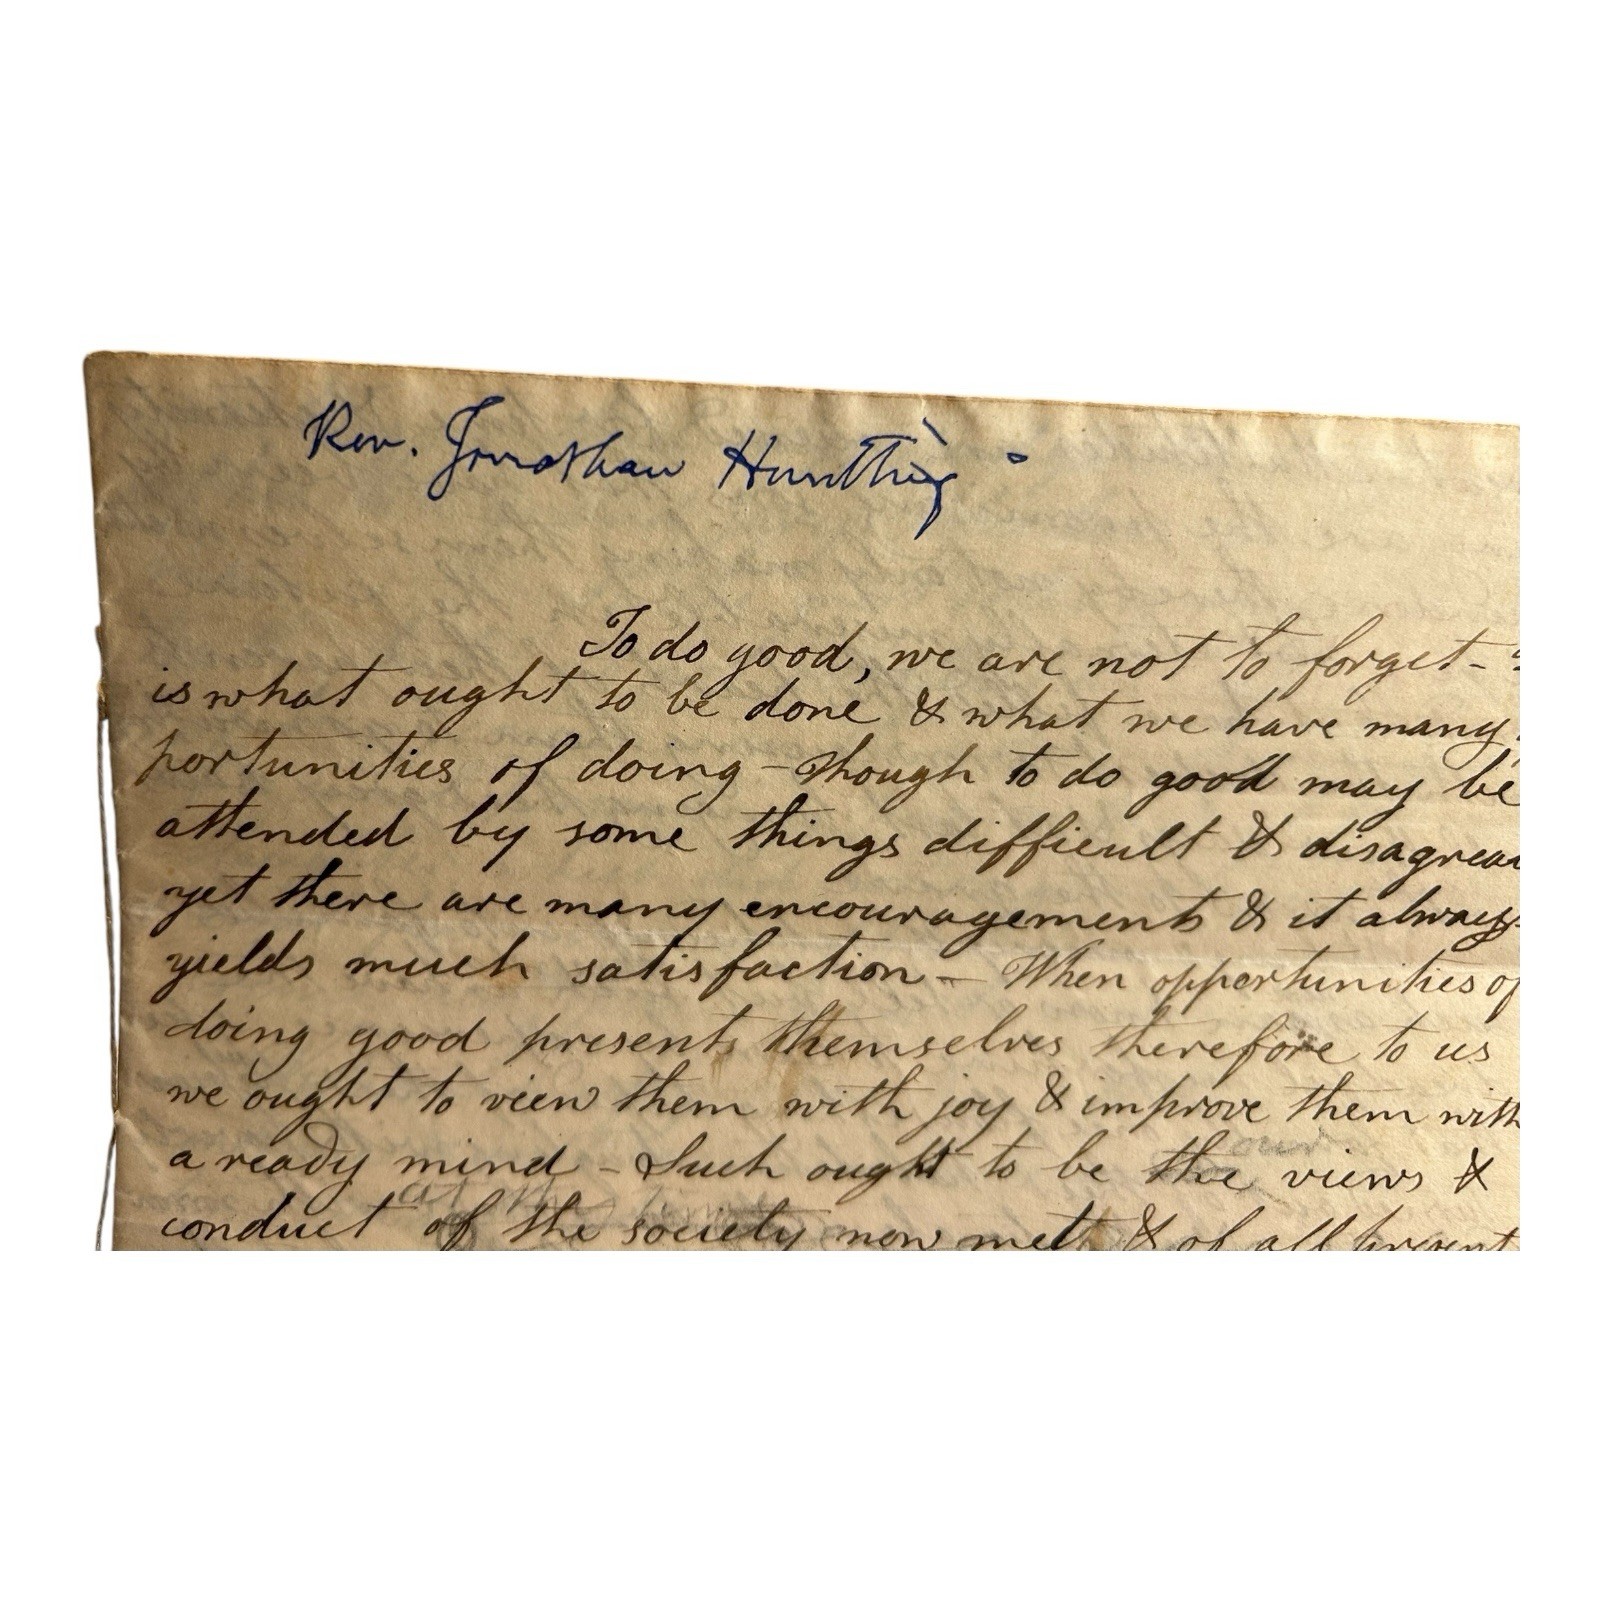 Rev. Jonathan Huntting
To do good, we are not to forget -
is what ought to be done & what we have many
portunities of doing - though to do good may be
attended by some things difficult & disagreea
yet there are many encouragements & it always
yields much satisfaction - When opportunities of
doing good present themselves therefore to us
we ought to view them with joy & improve them with
a ready mind - Such ought to be the our views &
conduct of the society now met & of all present